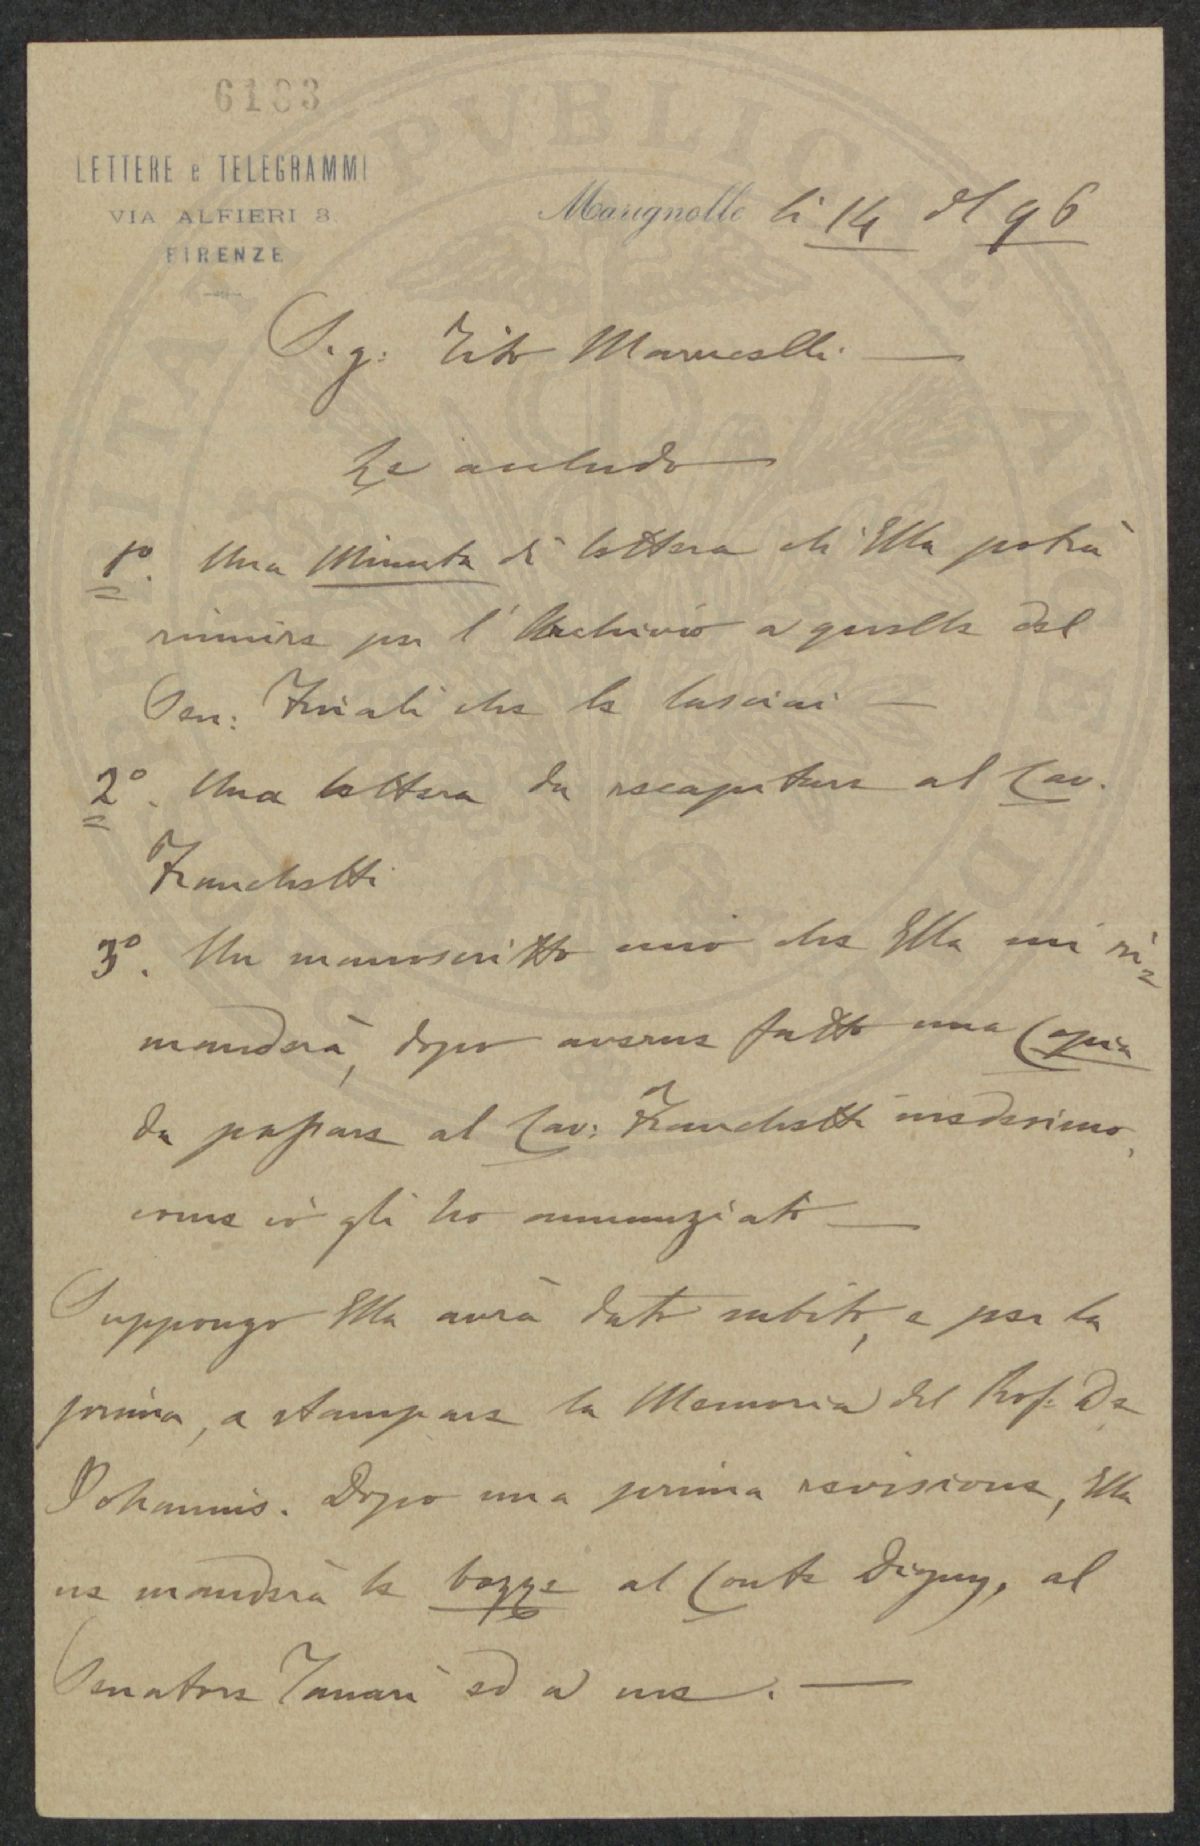 6183
LETTERE e TELEGRAMMI
VIA ALFIERI 8.
FIRENZE
Marignolle li 14 96
Sig: Tito Marucelli.
Le accludo
1º. Una Minuta di lettera ch' Ella potrà
riunire per l'Archivio a quelle del
Sen: Finali che le lasciai
2º. Una lettera da recapitare al Cav.
Franchetti
3º. Un manoscritto mio che Ella mi ri=
manderà, dopo averne fatto una Copia
da passare al Cav: Franchetti medesimo,
come io gli ho annunziato
Suppongo Ella avrà dato subito, e per la
prima, a stampare la Memoria del Prof. De
Johannis. Dopo una prima revisione, Ella
ne manderà le bozze al Conte Digny, al
Senatore Tanari ed a me.